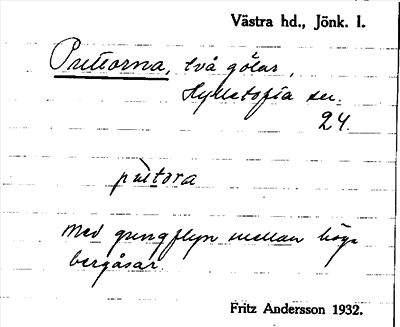 Västra hd., Jönk. l.
Puttorna, två gölar,
Hylletofta sn.
24.
pùttora
med gungflyn mellan höga
bergåsar.
Fritz Andersson 1932.